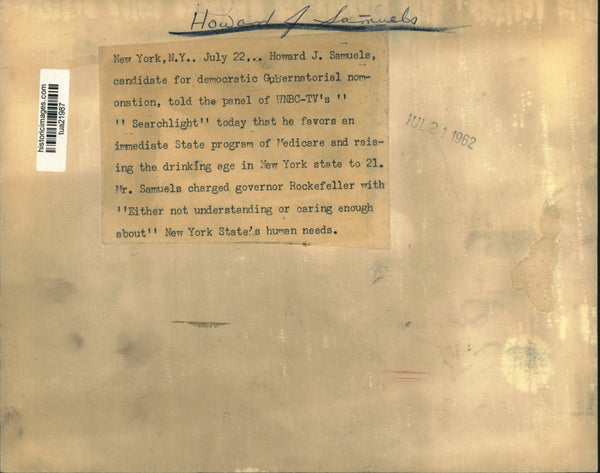 Howard J Samuels
New York,N.Y.. July 22,.. Howard J. Samuels,
candidate for democratic Gubernatorial nom-
onation, told the panel of WNBC-TV's ''
'' Searchlight'' today that he favors an
immediate State program of Medicare and rais-
ing the drinking age in New York state to 21.
Mr. Samuels charged governor Rockefeller with
''Either not understanding or caring enough
about'' New York State's human needs.
JUL 21 1962
historicimages.com
tua21987